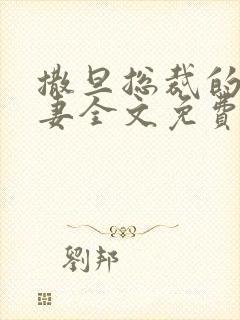 撒旦总裁的
妻全文免費
劉邦